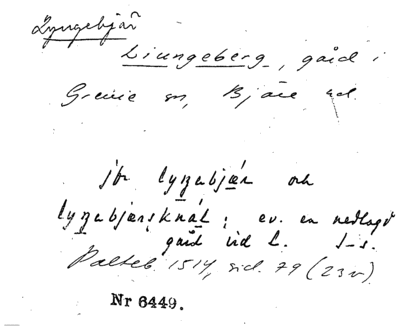 Lyngebjär
Liungeberg, gård i
Grevie sn, Bjäre hd.
jfr lyŋabjær och
lyŋabjærsknál; ev. en nedlagd
gård vid L. J-s.
Palteb. 1514, sid. 79 (23v).
Nr 6449.